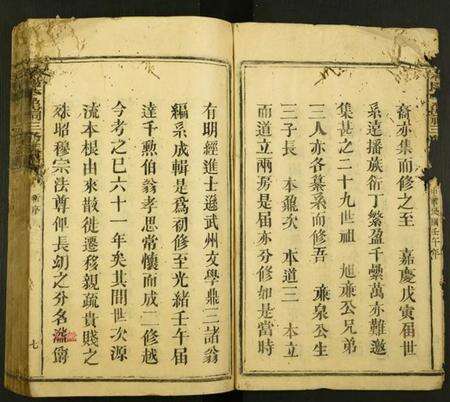 裔亦集而修之至　嘉慶戊寅屆世
系遠播族衍丁繁盈千疊萬亦難邀
集甚之二十九世祖　旭㢘公兄弟
三人亦各纂系而修吾　㢘泉公生
三子長　本鼐次　本道三　本立
而道立兩房是屆亦分修如是當時
有明經進士遜武州文學鼎三諸翁
編系成輯是爲初修至光緒壬午屆
達千勲伯翁孝思常懷而成二修越
今考之巳六十一年矣其間世次源
流本根由來散徙遷移親疏貴賤之
殊昭穆宗法尊俾長幼之分名
新序
七